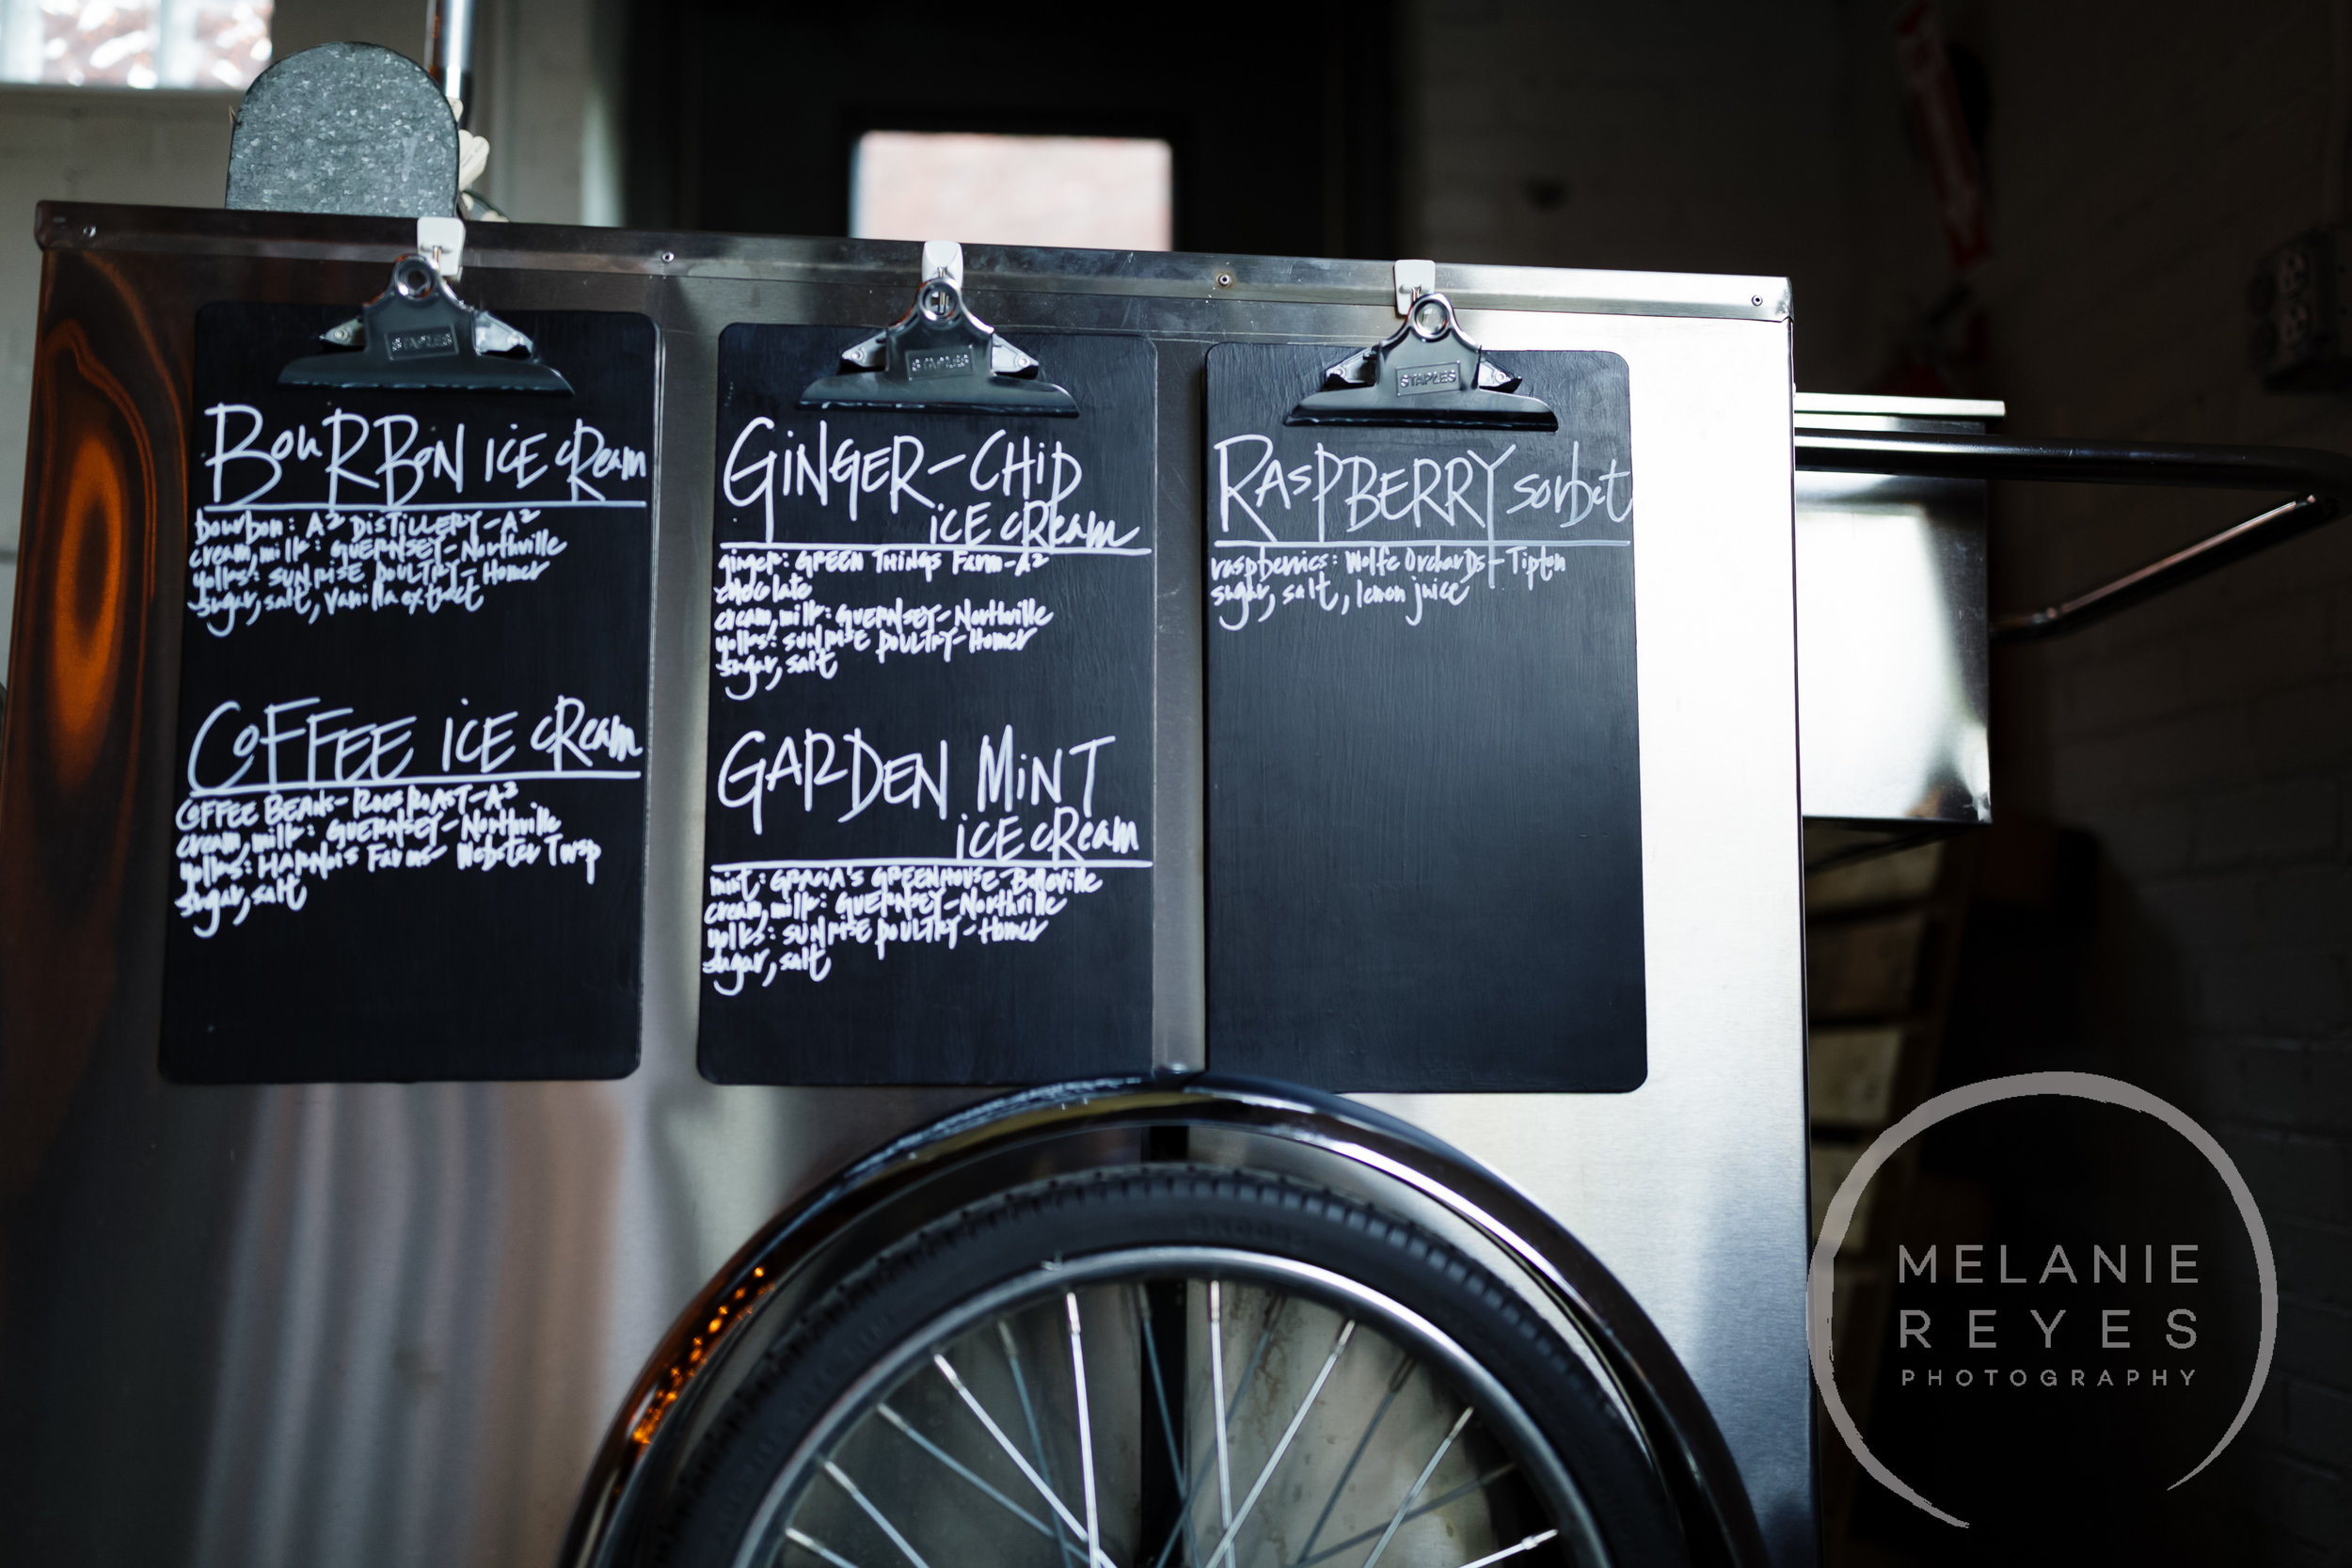 STAPLES
BOURBON ICE CREAM
bourbon: A² DISTILLERY-A²
cream, milk: GUERNSEY-Northville
yolks: SUNRISE POULTRY-Homer
sugar, salt, vanilla extract
COFFEE ICE CREAM
COFFEE BEANS- ROOS ROAST-A²
cream, milk: GUERNSEY-Northville
yolks: HARNOIS Farms- Webster Twsp
sugar, salt
STAPLES
GINGER-CHIP
ICE CREAM
ginger: GREEN THINGS Farm-A²
chocolate
cream, milk: GUERNSEY-Northville
yolks: SUNRISE POULTRY-Homer
sugar, salt
GARDEN MINT
ICE CREAM
mint: GRACIA'S GREENHOUSE-Belleville
cream, milk: GUERNSEY-Northville
yolks: SUNRISE POULTRY-Homer
sugar, salt
STAPLES
RASPBERRY sorbet
raspberries: Wolfe Orchards-Tipton
sugar, salt, lemon juice
MELANIE
REYES
PHOTOGRAPHY